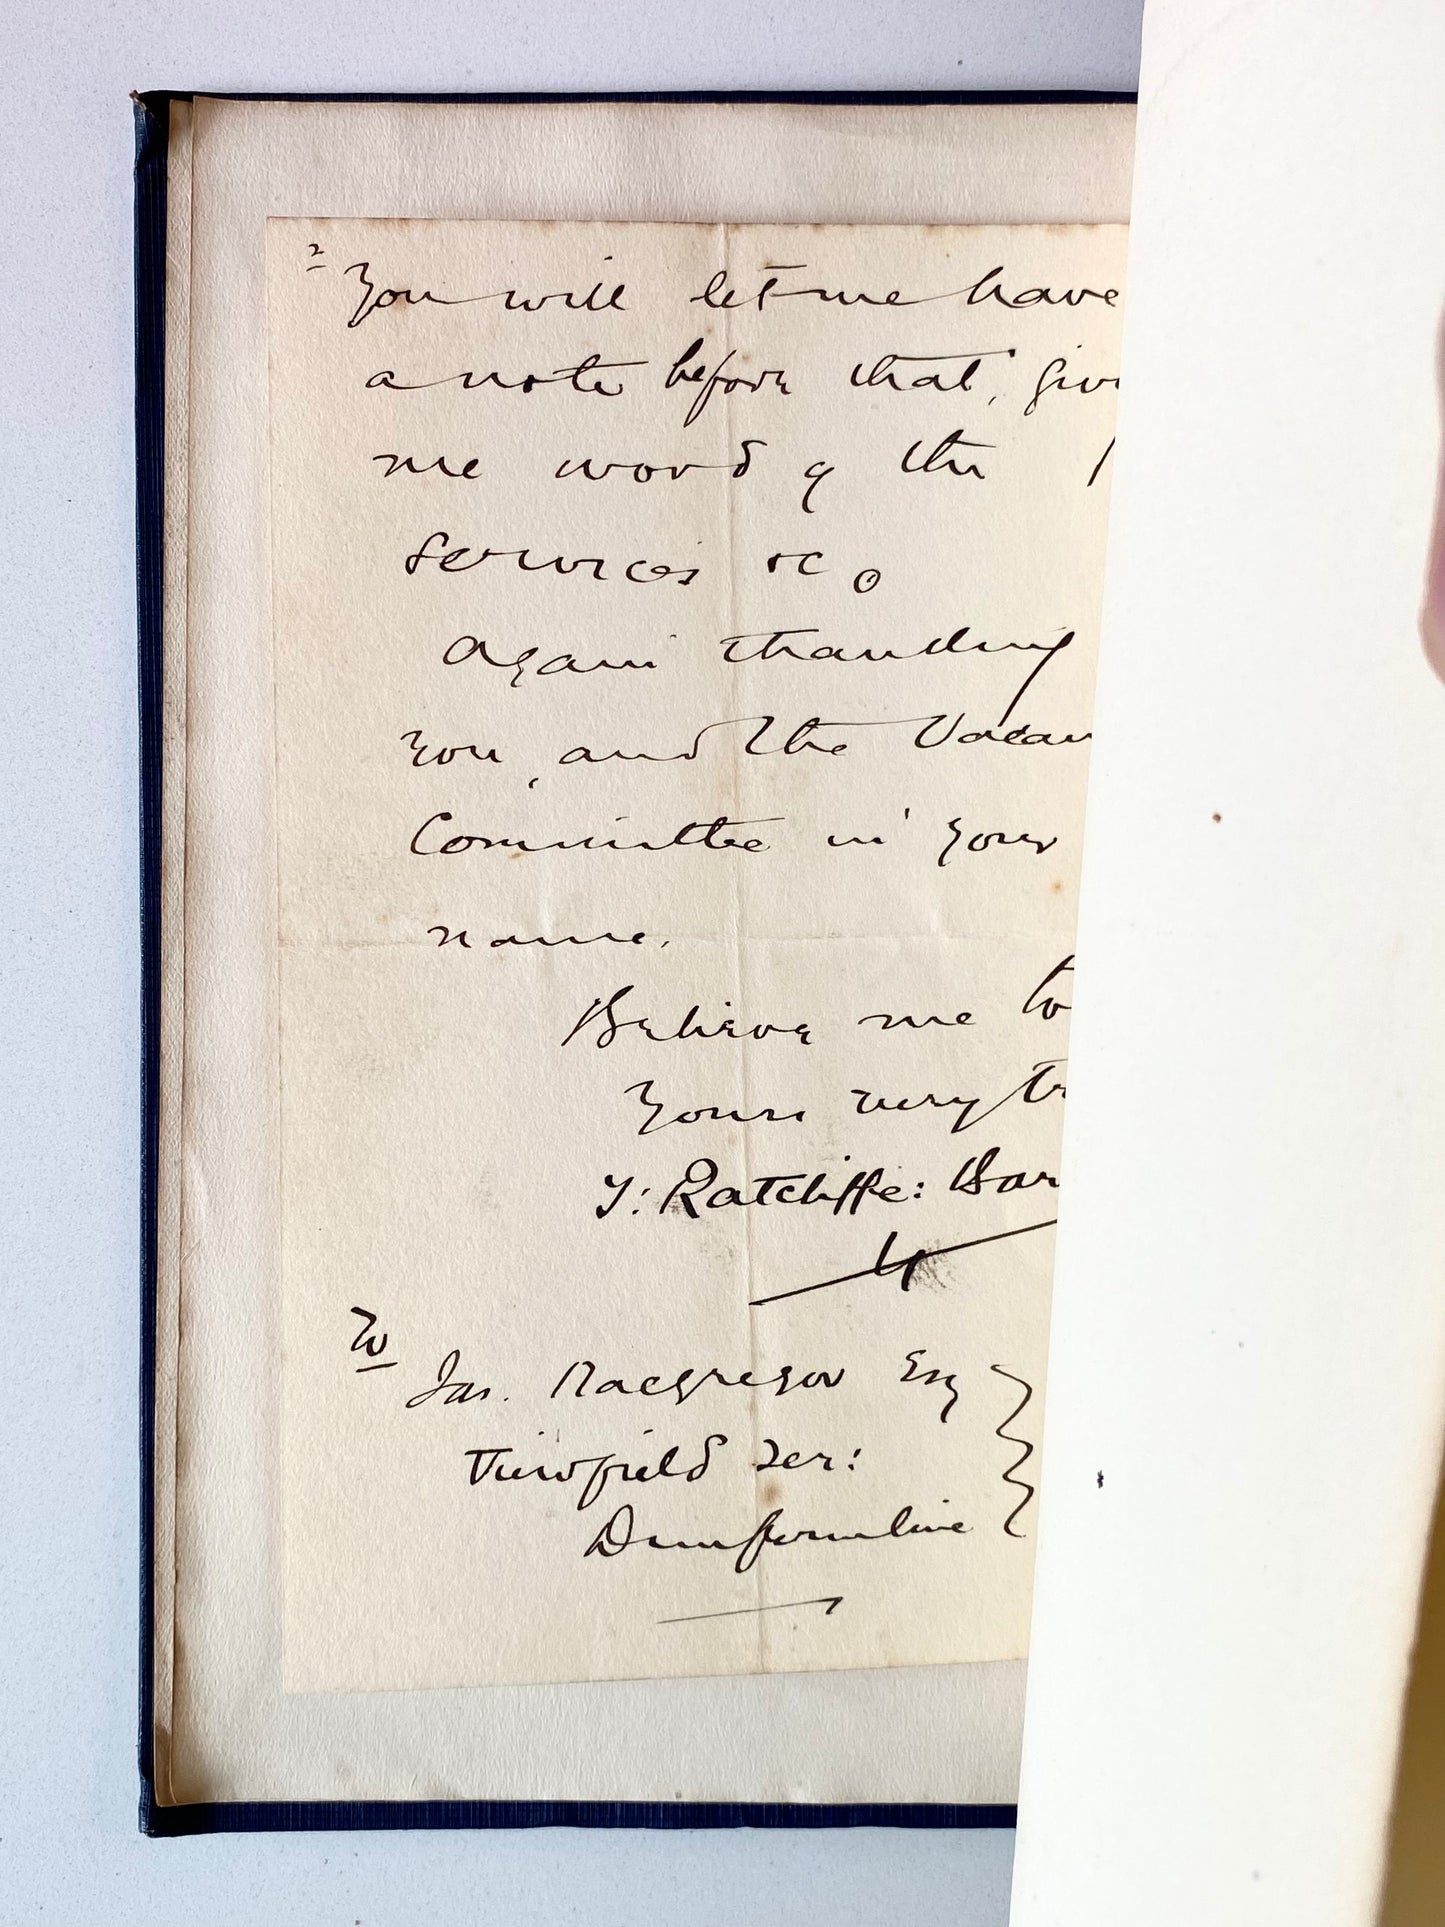 2
You will let me have
a note before that, giv
me word of the
services &c
Again thanking
you, and the Vacan
Committee in your
name.
Believe me to
Yours very tr
T: Ratcliffe: Bar
To
Jas. Macgregor Esq
Viewfield Ter:
Dunfermline